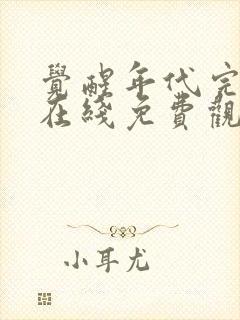 覺醒年代完
在綫免費觀
小耳尤